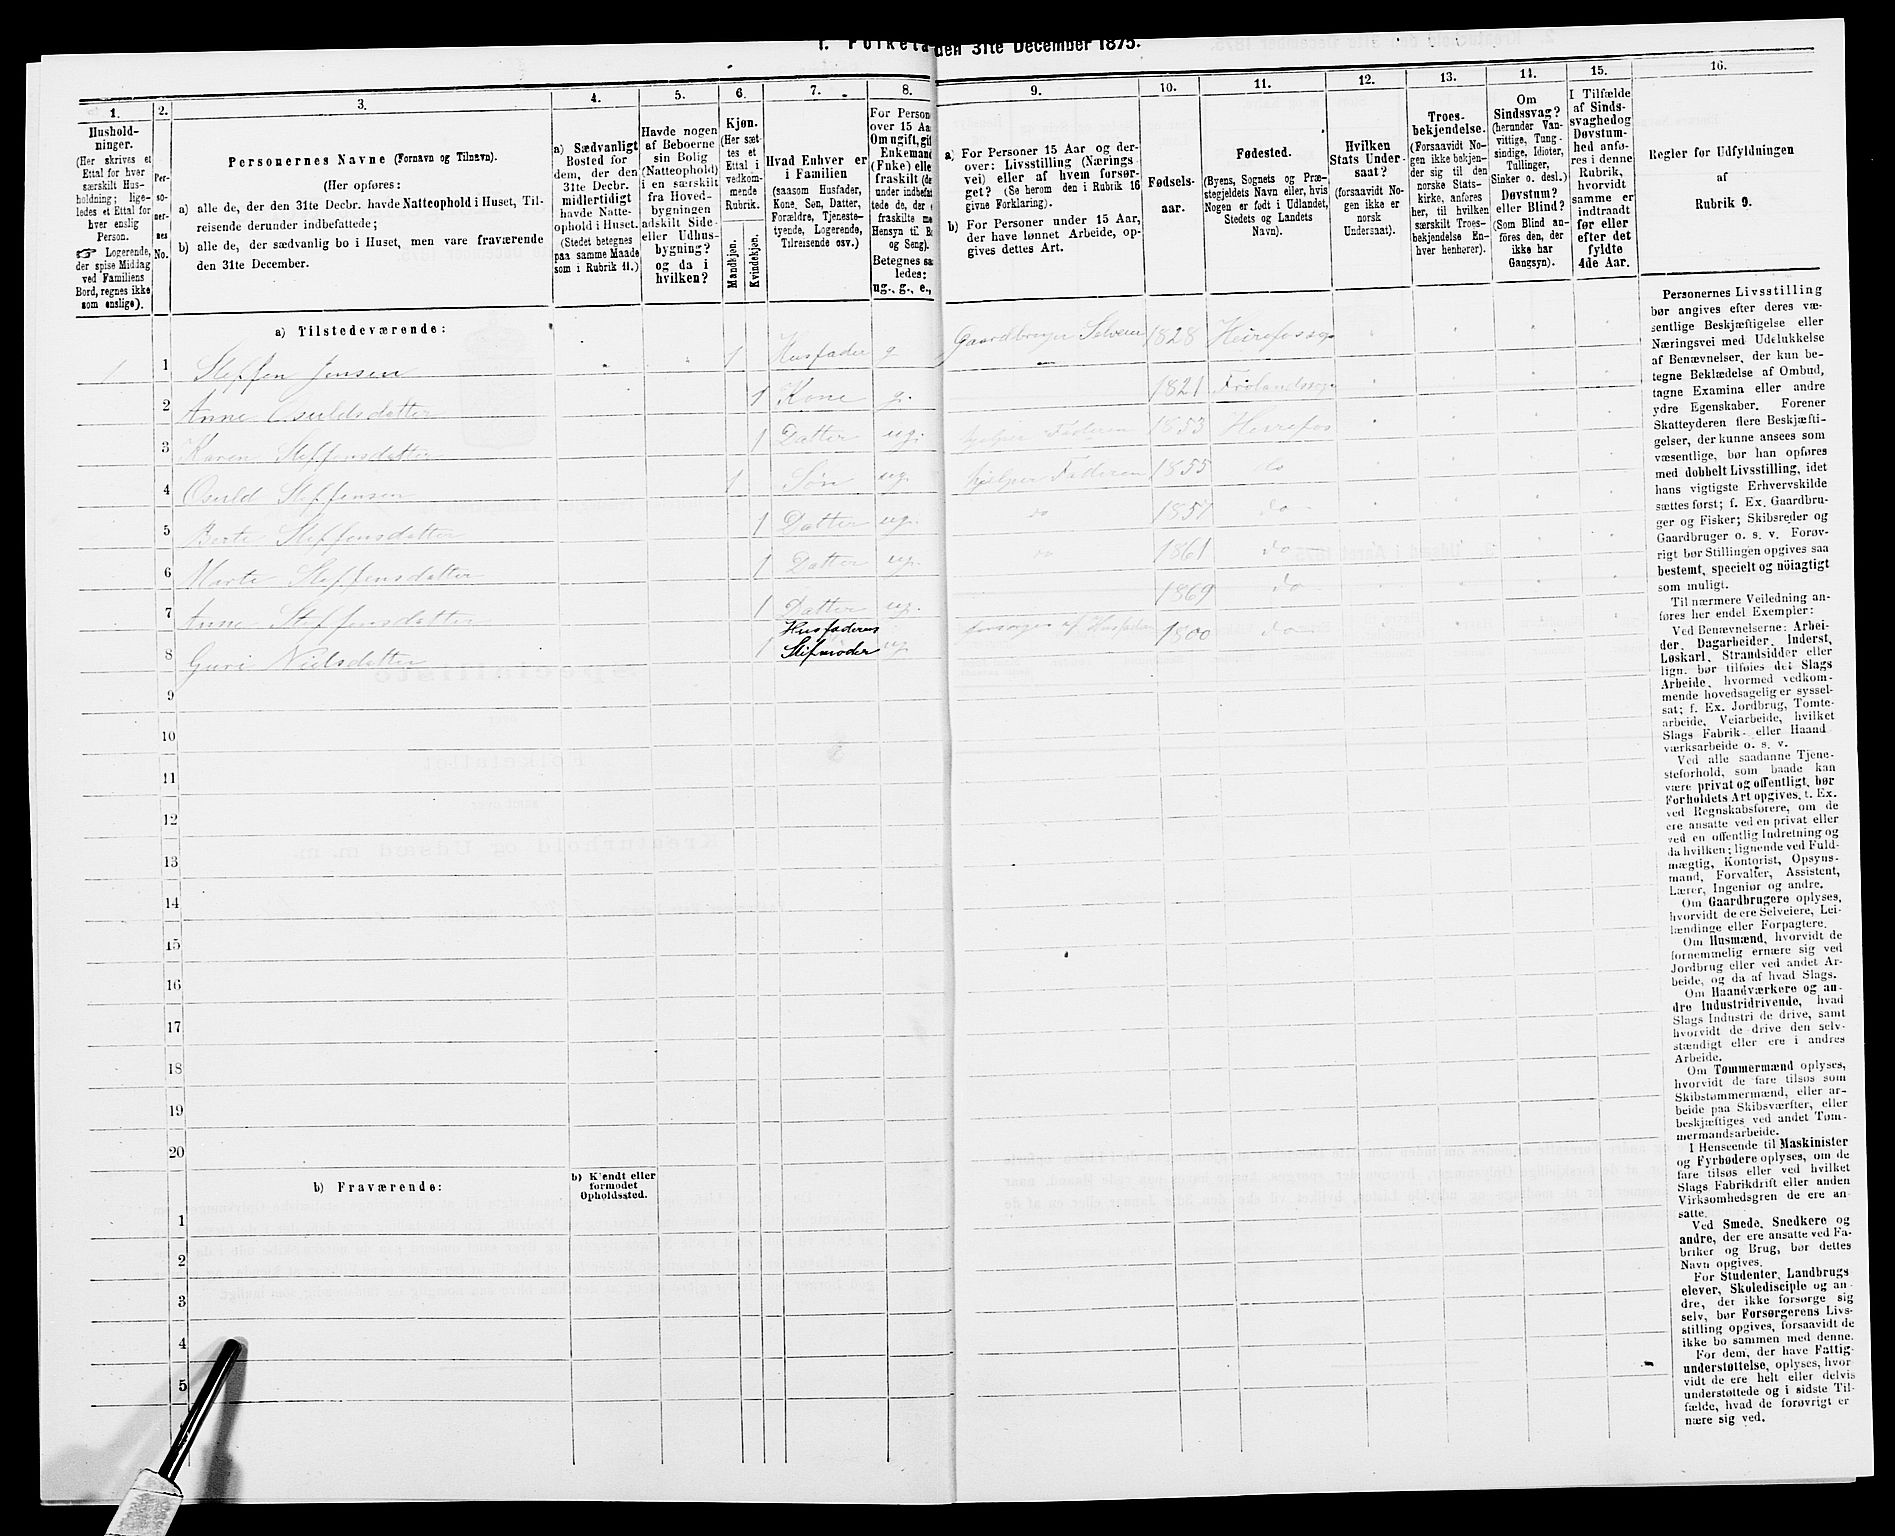 1. Folketa den 31te December 1875.
1.
Hushold-
ninger.
(Her skrives et
Ettal for hver
særskilt Hus-
holdning; lige-
ledes et Ettal for
hver enslig
Person.
☞ Logerende,
der spise Middag
ved Familiens
Bord, regnes ikke
som enslige).
2.
Per-
so-
ner-
nes
No.
3.
Personernes Navne (Fornavn og Tilnavn).
(Her opføres:
a) alle de, der den 31te Decbr. havde Natteophold i Huset, Til-
reisende derunder indbefattede;
b) alle de, der sædvanlig bo i Huset, men vare fraværende
den 31te December.
4.
a) Sædvanligt
Bosted for
dem, der den
31te Decbr.
midlertidigt
havde Natte-
ophold i Huset.
(Stedet betegnes
paa samme Maade
som i Rubrik 11.)
5.
Havde nogen
af Beboerne
sin Bolig
(Natteophold)
i en særskilt
fra Hoved-
bygningen
adskilt Side-
eller Udhus-
bygning?
og da i
hvilken?
6.
Kjøn.
(Her sæt-
tes et
Ettal i
vedkom-
mende
Rubrik.
Mandkjøn.
Kvindekjøn.
7.
Hvad Enhver er
i Familien
(saasom Husfader,
Kone, Søn, Datter,
Forældre, Tjeneste-
tyende, Logerende,
Tilreisende osv.)
8.
For Person
over 15 Aa
Om ugift, gif
Enkemand
(Enke) elle
fraskilt (de
under indbefat
tede de, der e
fraskilte me
Hensyn til. Bo
og Seng).
Betegnes saa
ledes:
ug., g., e.,
9.
a) For Personer 15 Aar og der-
over: Livsstilling (Nærings
vei) eller af hvem forsør-
get? (Se herom den i Rubrik 16
givne Forklaring).
b) For Personer under 15 Aar,
der have lønnet Arbeide, op-
gives dettes Art.
10.
Fødsels-
aar.
11.
Fødested.
(Byens, Sognets og Præ-
stegjeldets Navn eller, hvis
Nogen er født i Udlandet,
Stedets og Landets
Navn).
12.
Hvilken
Stats Under-
saat?
(forsaavidt No-
gen ikke er
norsk
Undersaat).
13.
Troes-
bekjendelse.
(Forsaavidt No-
gen ikke bekjen-
der sig til den
norske Stats-
kirke, anføres
her, til hvilken
særskilt Troes-
bekjendelse En-
hver henhører).
14.
Om
Sindssvag?
(herunder Van-
vittige, Tung-
sindige, Idioter,
Tullinger,
Sinker o. desl.)
Døvstum?
eller Blind?
(Som Blind an-
føres den, der
ikke har
Gangsyn).
15.
I Tilfælde
af Sinds-
svaghed og
Døvstum-
hed anfø-
res i denne
Rubrik,
hvorvidt
samme er
indtraadt
før eller
efter det
fyldte
4de Aar.
16.
Regler for Udfyldningen
af
Rubrik 9.
a) Tilstedeværende:
1 1 Steffen Jensen 1 Husfader g Gaardbruger Selveier 1828 Heirefossogn
2 Anne Osuldsdatter 1 Kone g. 1821 Frolandssogn
3 Karen Steffensdatter 1 Datter ug. hjelper Faderen 1853 Heirefos
4 Osuld Steffensen 1 Søn ug. hjelper Faderen 1855 do
5 Berte Steffensdatter 1 Datter ug. do 1857 do
6 Marte Steffensdatter 1 Datter ug. do 1861 do
7 Anne Steffensdatter 1 Datter ug. 1869 do
8 Guri Nielsdatter 1 Husfaderens
Stifmoder ug. forsørges af Husfaderen 1800 do
9
10
11
12
13
14
15
16
17
18
19
20
b) Fraværende:
b) Kjendt eller
formodet
Opholdssted.
1
2
3
4
5
Personernes Livsstilling
bør angives efter deres væ-
sentlige Beskjæftigelse eller
Næringsvei med Udelukkelse
af Benævnelser, der kun be-
tegne Beklædelse af Ombud,
tagne Examina eller andre
ydre Egenskaber. Forener
Skatteyderen flere Beskjæfti-
gelser, der kunne ansees som
væsentlige, bør han opføres
med dobbelt Livsstilling, idet
hans vigtigste Erhvervskilde
sættes først; f. Ex. Gaardbru-
ger og Fisker; Skibsreder og
Gaardbruger o. s. v. Forøv-
rigt bør Stillingen opgives saa
bestemt, specielt og nöiagtigt
som muligt.
Til nærmere Veiledning an-
føres her endel Exempler:
Ved Benævnelserne: Arbei-
der, Dagarbeider, Inderst,
Løskarl, Strandsidder eller
lign. bør tilføies det Slags
Arbeide, hvormed vedkom-
mende hovedsagelig er syssel-
sat; f. Ex. Jordbrug, Tomte-
arbeide, Veiarbeide, hvilket
Slags Fabrik- eller Haand
værksarbeide o. s. v.
Ved alle saadanne Tjene-
steforhold, som baade kan
være privat og offentligt, bør
Forholdets Art opgives, t. Ex.
ved Regnskabsførere, om de
ere ansatte ved en privat eller
ved en offentlig Indretning og
da hvilken; lignende ved Fuld-
mægtig, Kontorist, Opsyns-
mand, Forvalter, Assistent,
Lærer, Ingeniør og andre.
Om Gaardbrugere oplyses,
hvorvidt de ere Selveiere, Lei-
lændinge eller Forpagtere.
Om Husmænd, hvorvidt de
fornemmelig ernære sig ved
Jordbrug eller ved andet Ar-
beide, og da af hvad Slags.
Om Haandværkere og an-
dre Industridrivende, hvad
Slags Industri de drive, samt
hvorvidt de drive den selv-
stændigt eller ere i andres
Arbeide.
Om Tømmermænd oplyses,
hvorvidt de fare tilsøs som
Skibstømmermænd, eller ar-
beide paa Skibsværfter, eller
beskjæftiges ved andet Tøm-
mermandsarbeide.
I Henseende til Maskinister
og Fyrbødere oplyses, om de
fare tilsøs eller ved hvilket
Slags Fabrikdrift eller anden
Virksomhedsgren de ere an-
satte.
Ved Smede, Snedkere og
andre, der ere ansatte ved Fa-
briker og Brug, bør dettes
Navn opgives.
For Studenter, Landbrugs
elever, Skoledisciple og an-
dre, der ikke forsørge sig
selv, bør Forsørgerens Livs-
stilling opgives, forsaavidt de
ikke bo sammen med denne.
For dem, der have Fattig-
understøttelse, oplyses, hvor
vidt de ere helt eller delvis
understøttede og i sidste Til-
fælde, hvad de forøvrigt er
nære sig ved.